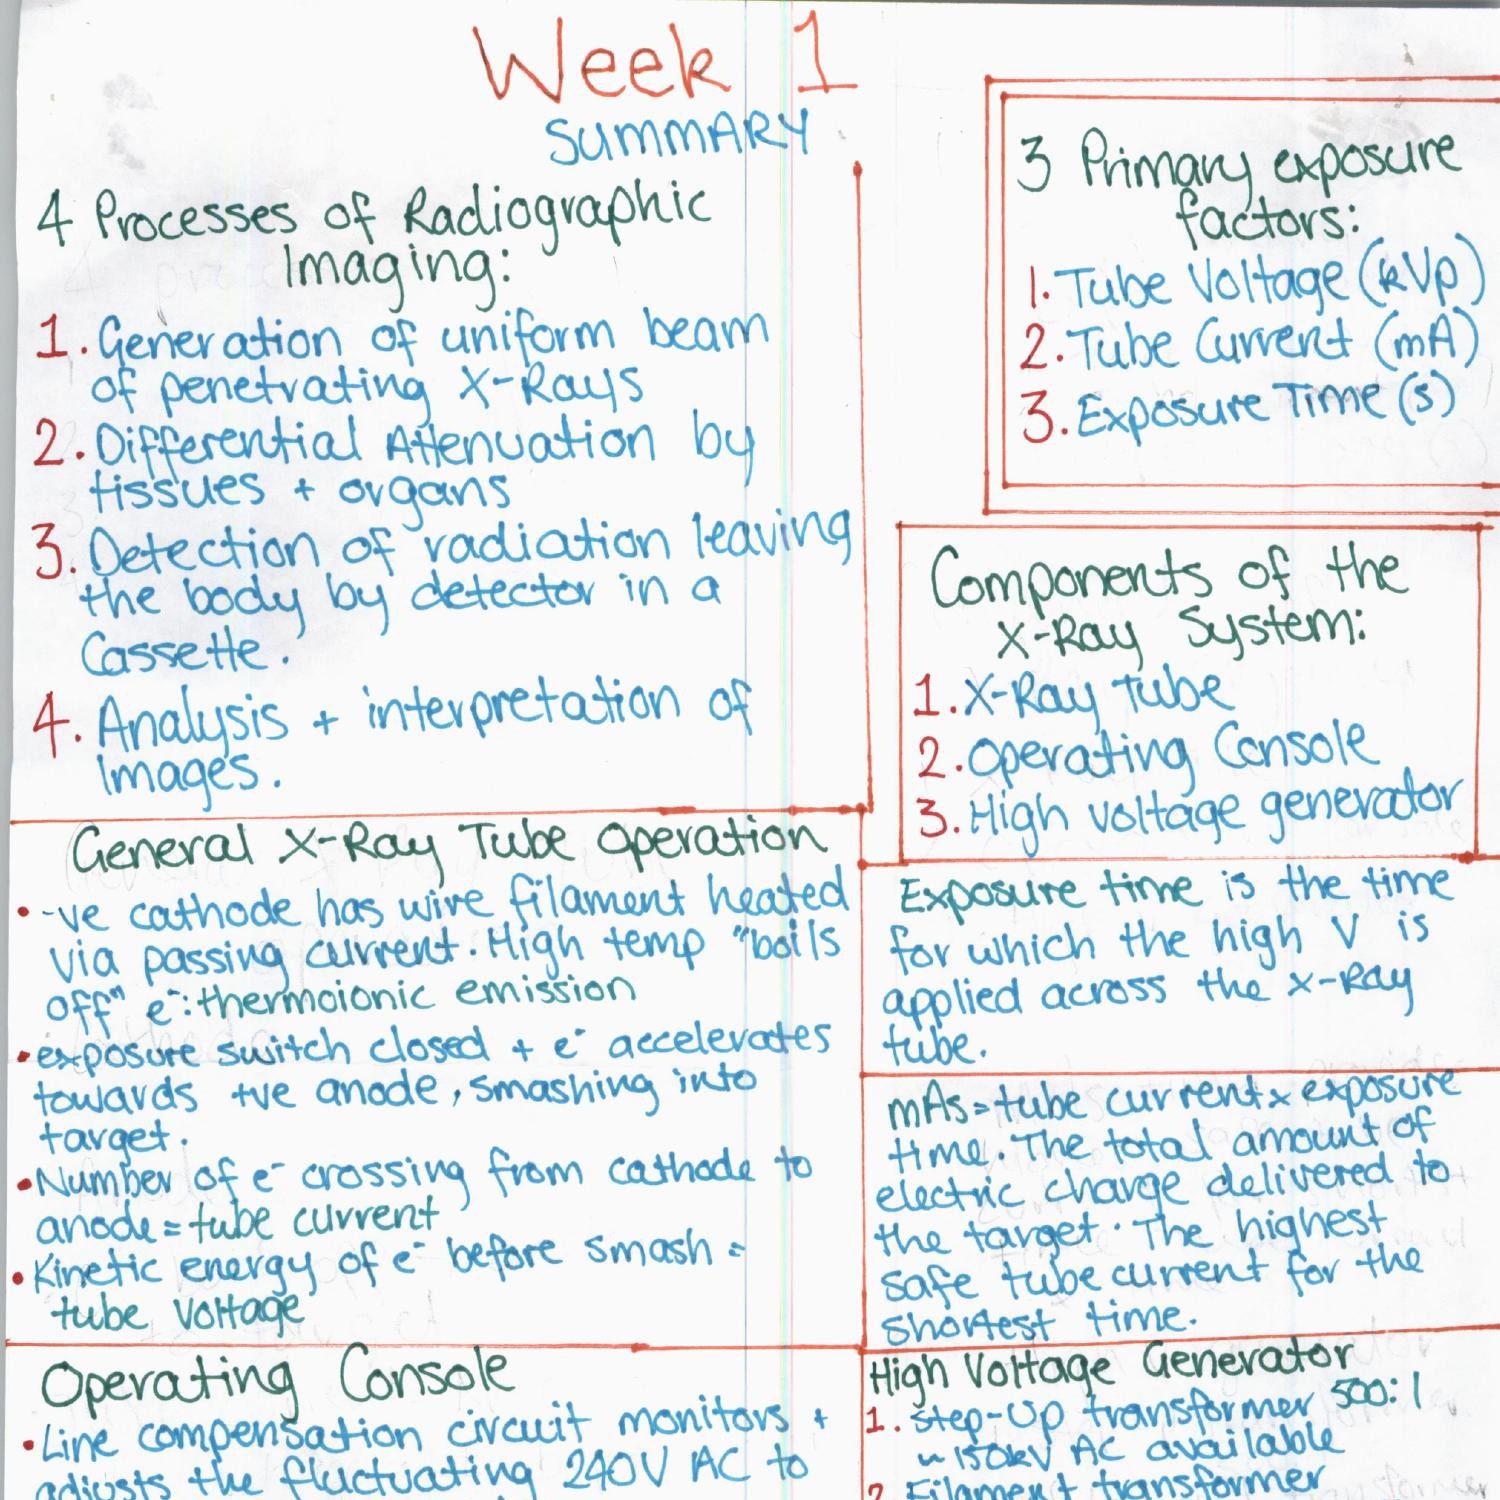 Week 1
SUMMARY
4 Processes of Radiographic
Imaging:
1. Generation of uniform beam
of penetrating X-Rays
2. Differential Attenuation by
tissues + organs
3. Detection of radiation leaving
the body by detector in a
Cassette.
4. Analysis + interpretation of
Images.
3 Primary exposure
factors:
1. Tube Voltage (kVp)
2. Tube Current (mA)
3. Exposure Time (s)
Components of the
X-Ray System:
1. X-Ray Tube
2. Operating Console
3. High voltage generator
General X-Ray Tube Operation
• -ve cathode has wire filament heated
via passing current. High temp "boils
off" e⁻: thermoionic emission
• exposure switch closed + e⁻ accelerates
towards +ve anode, smashing into
target.
• Number of e⁻ crossing from cathode to
anode = tube current
• Kinetic energy of e⁻ before smash =
tube voltage
Exposure time is the time
for which the high V is
applied across the X-Ray
tube.
mAs = tube current x exposure
time. The total amount of
electric charge delivered to
the target. The highest
safe tube current for the
shortest time.
Operating Console
• Line compensation circuit monitors +
adjusts the fluctuating 240V AC to
High Voltage Generator
1. Step-Up transformer 500:1
~150kV AC available
2. Filament transformer